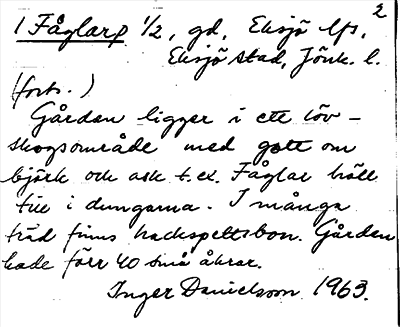 2
1 Fåglarp 1/2, gd, Eksjö lfs,
Eksjö stad, Jönk. l.
(forts.)
Gården ligger i ett löv-
skogsområde med gott om
björk och ask t.ex. Fåglar höll
till i dungarna. I många
träd finns hackspettsbon. Gården
hade förr 40 små åkrar.
Inger Danielsson 1963.